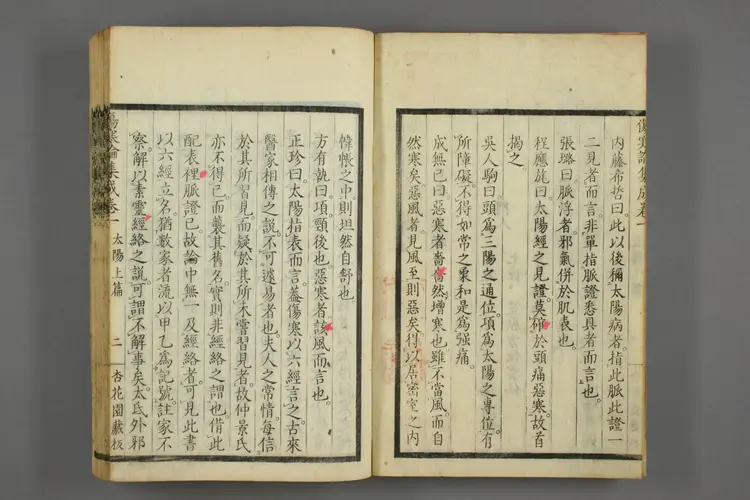 內藤希哲曰此以後稱太陽病者指此脈此證一
二見者而言非單指脈證悉具者而言也
張璐曰脈浮者邪氣併於肌表也
程應旄曰太陽經之見證莫確於頭痛惡寒故首
揭之
吳人駒曰頭爲三陽之通位項爲太陽之專位有
所障礙不得如常之柔和是爲強痛
成無已曰惡寒者嗇嗇然增寒也雖不當風而自
然寒矣惡風者見風至則惡矣得以居密室之內
幃帳之中則坦然自舒也
方有執曰項頸後也惡寒者該風而言也
正珍曰太陽指表而言蓋傷寒以六經言之古來
醫家相傳之說不可遽易者也夫人之常情每信
於其所習見而疑於其所未嘗習見者故仲景氏
亦不得已而襲其舊名實則非經絡之謂也借此
配表裡脈證已故論中無一及經絡者可見此書
以六經立名猶數家者流以甲乙爲記號註家不
察解以素靈經絡之說可謂不解事矣太氐外邪
傷寒論集成卷一
傷寒論集成卷一 太陽上篇 二 杏花園藏板